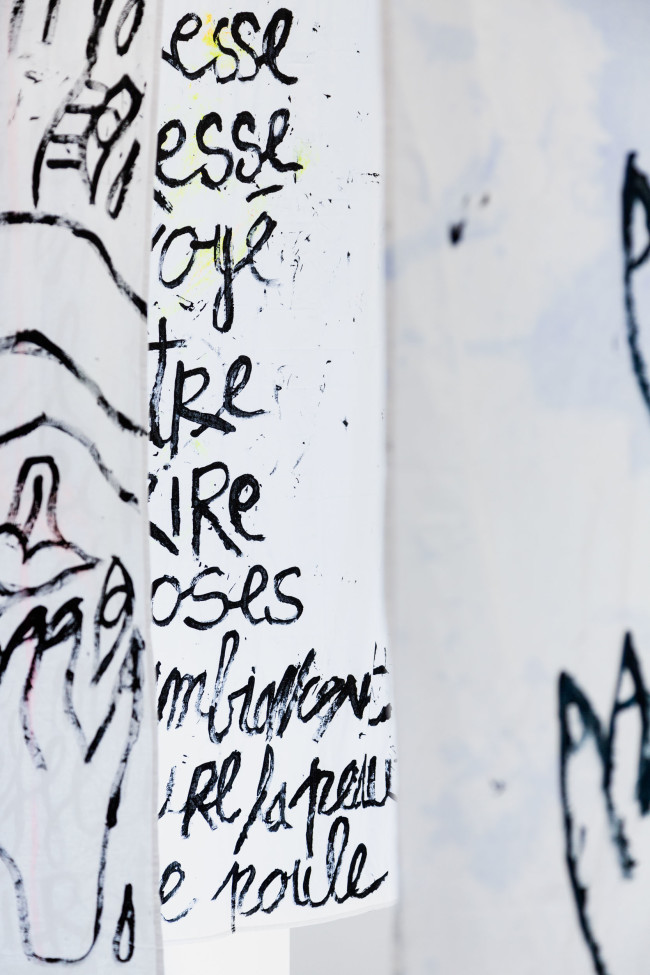 esse
esse
oyé
tre
IRe
oses
iRe la peau
e poule